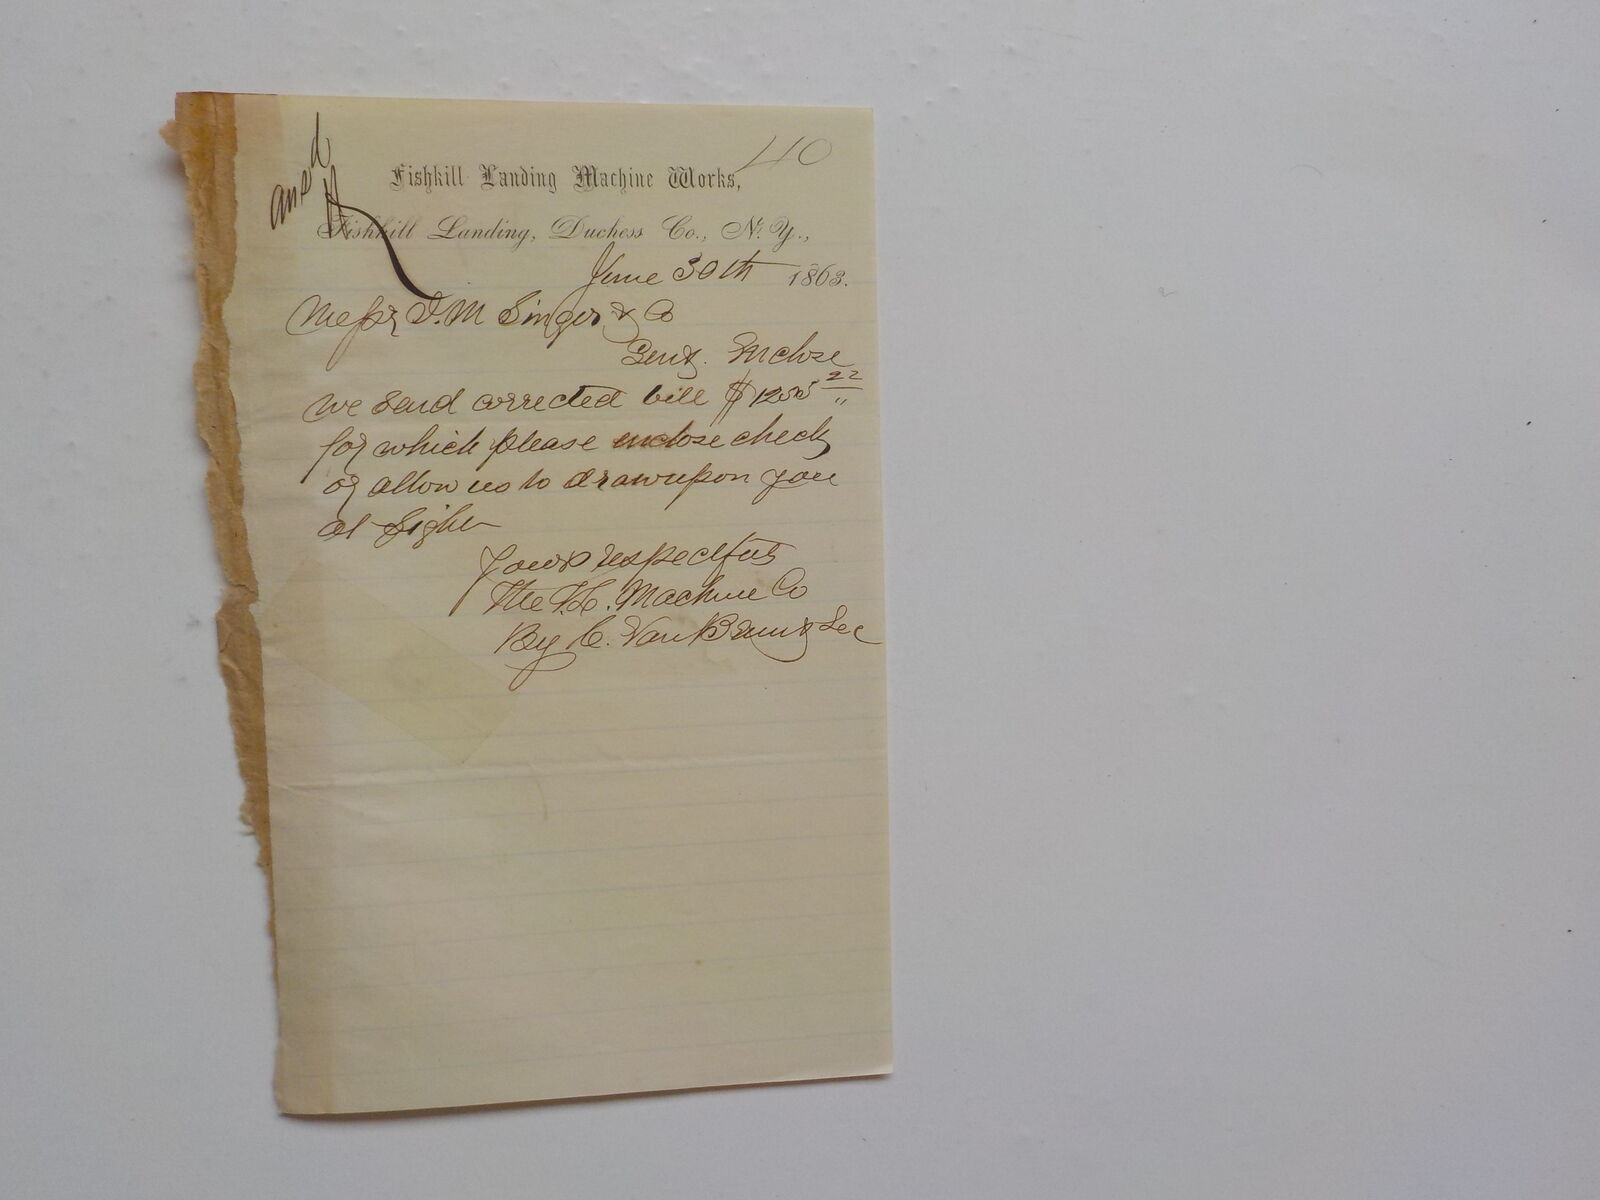 40
ansd
Fishkill Landing Machine Works,
Fishkill Landing, Duchess Co., N. Y.,
June 30th 1863.
Messrs I. M Singer & Co
Gents. Enclose
we send corrected bill $1255 22
for which please enclose check
or allow us to draw upon you
at Sight
Yours respectfully
The F. L. Machine Co
By C. Van Brunt Sec